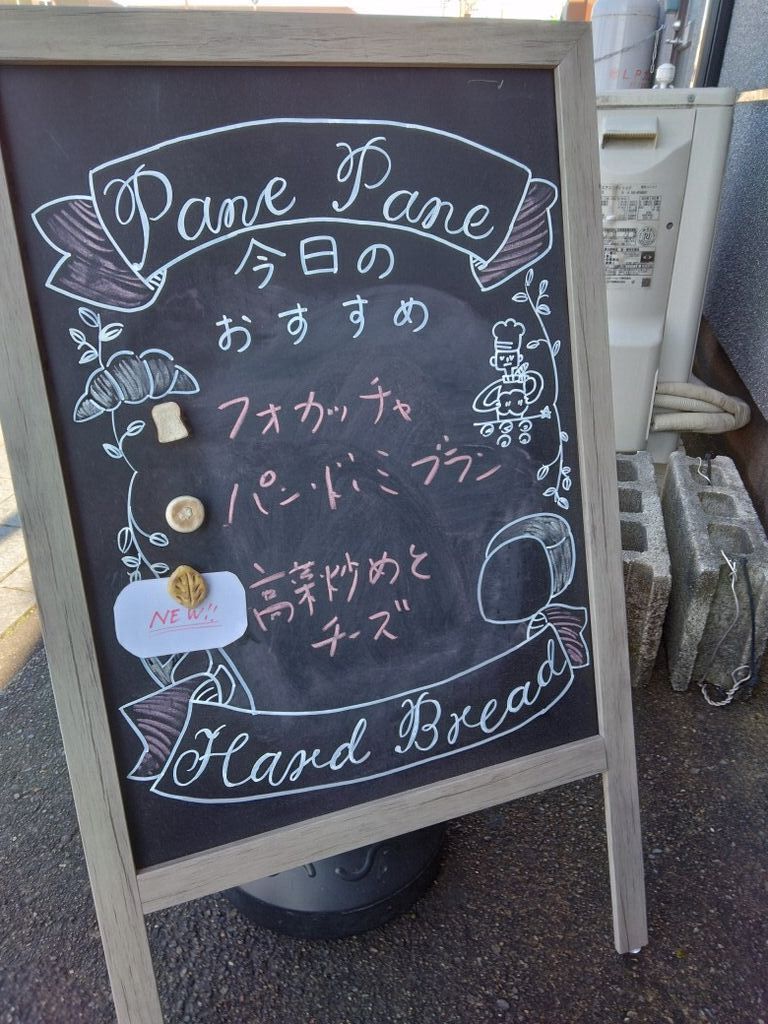 Pane Pane
今日の
おすすめ
フォカッチャ
パン・ド・ミ ブラン
NEW!!
高菜炒めと
チーズ
Hard Bread